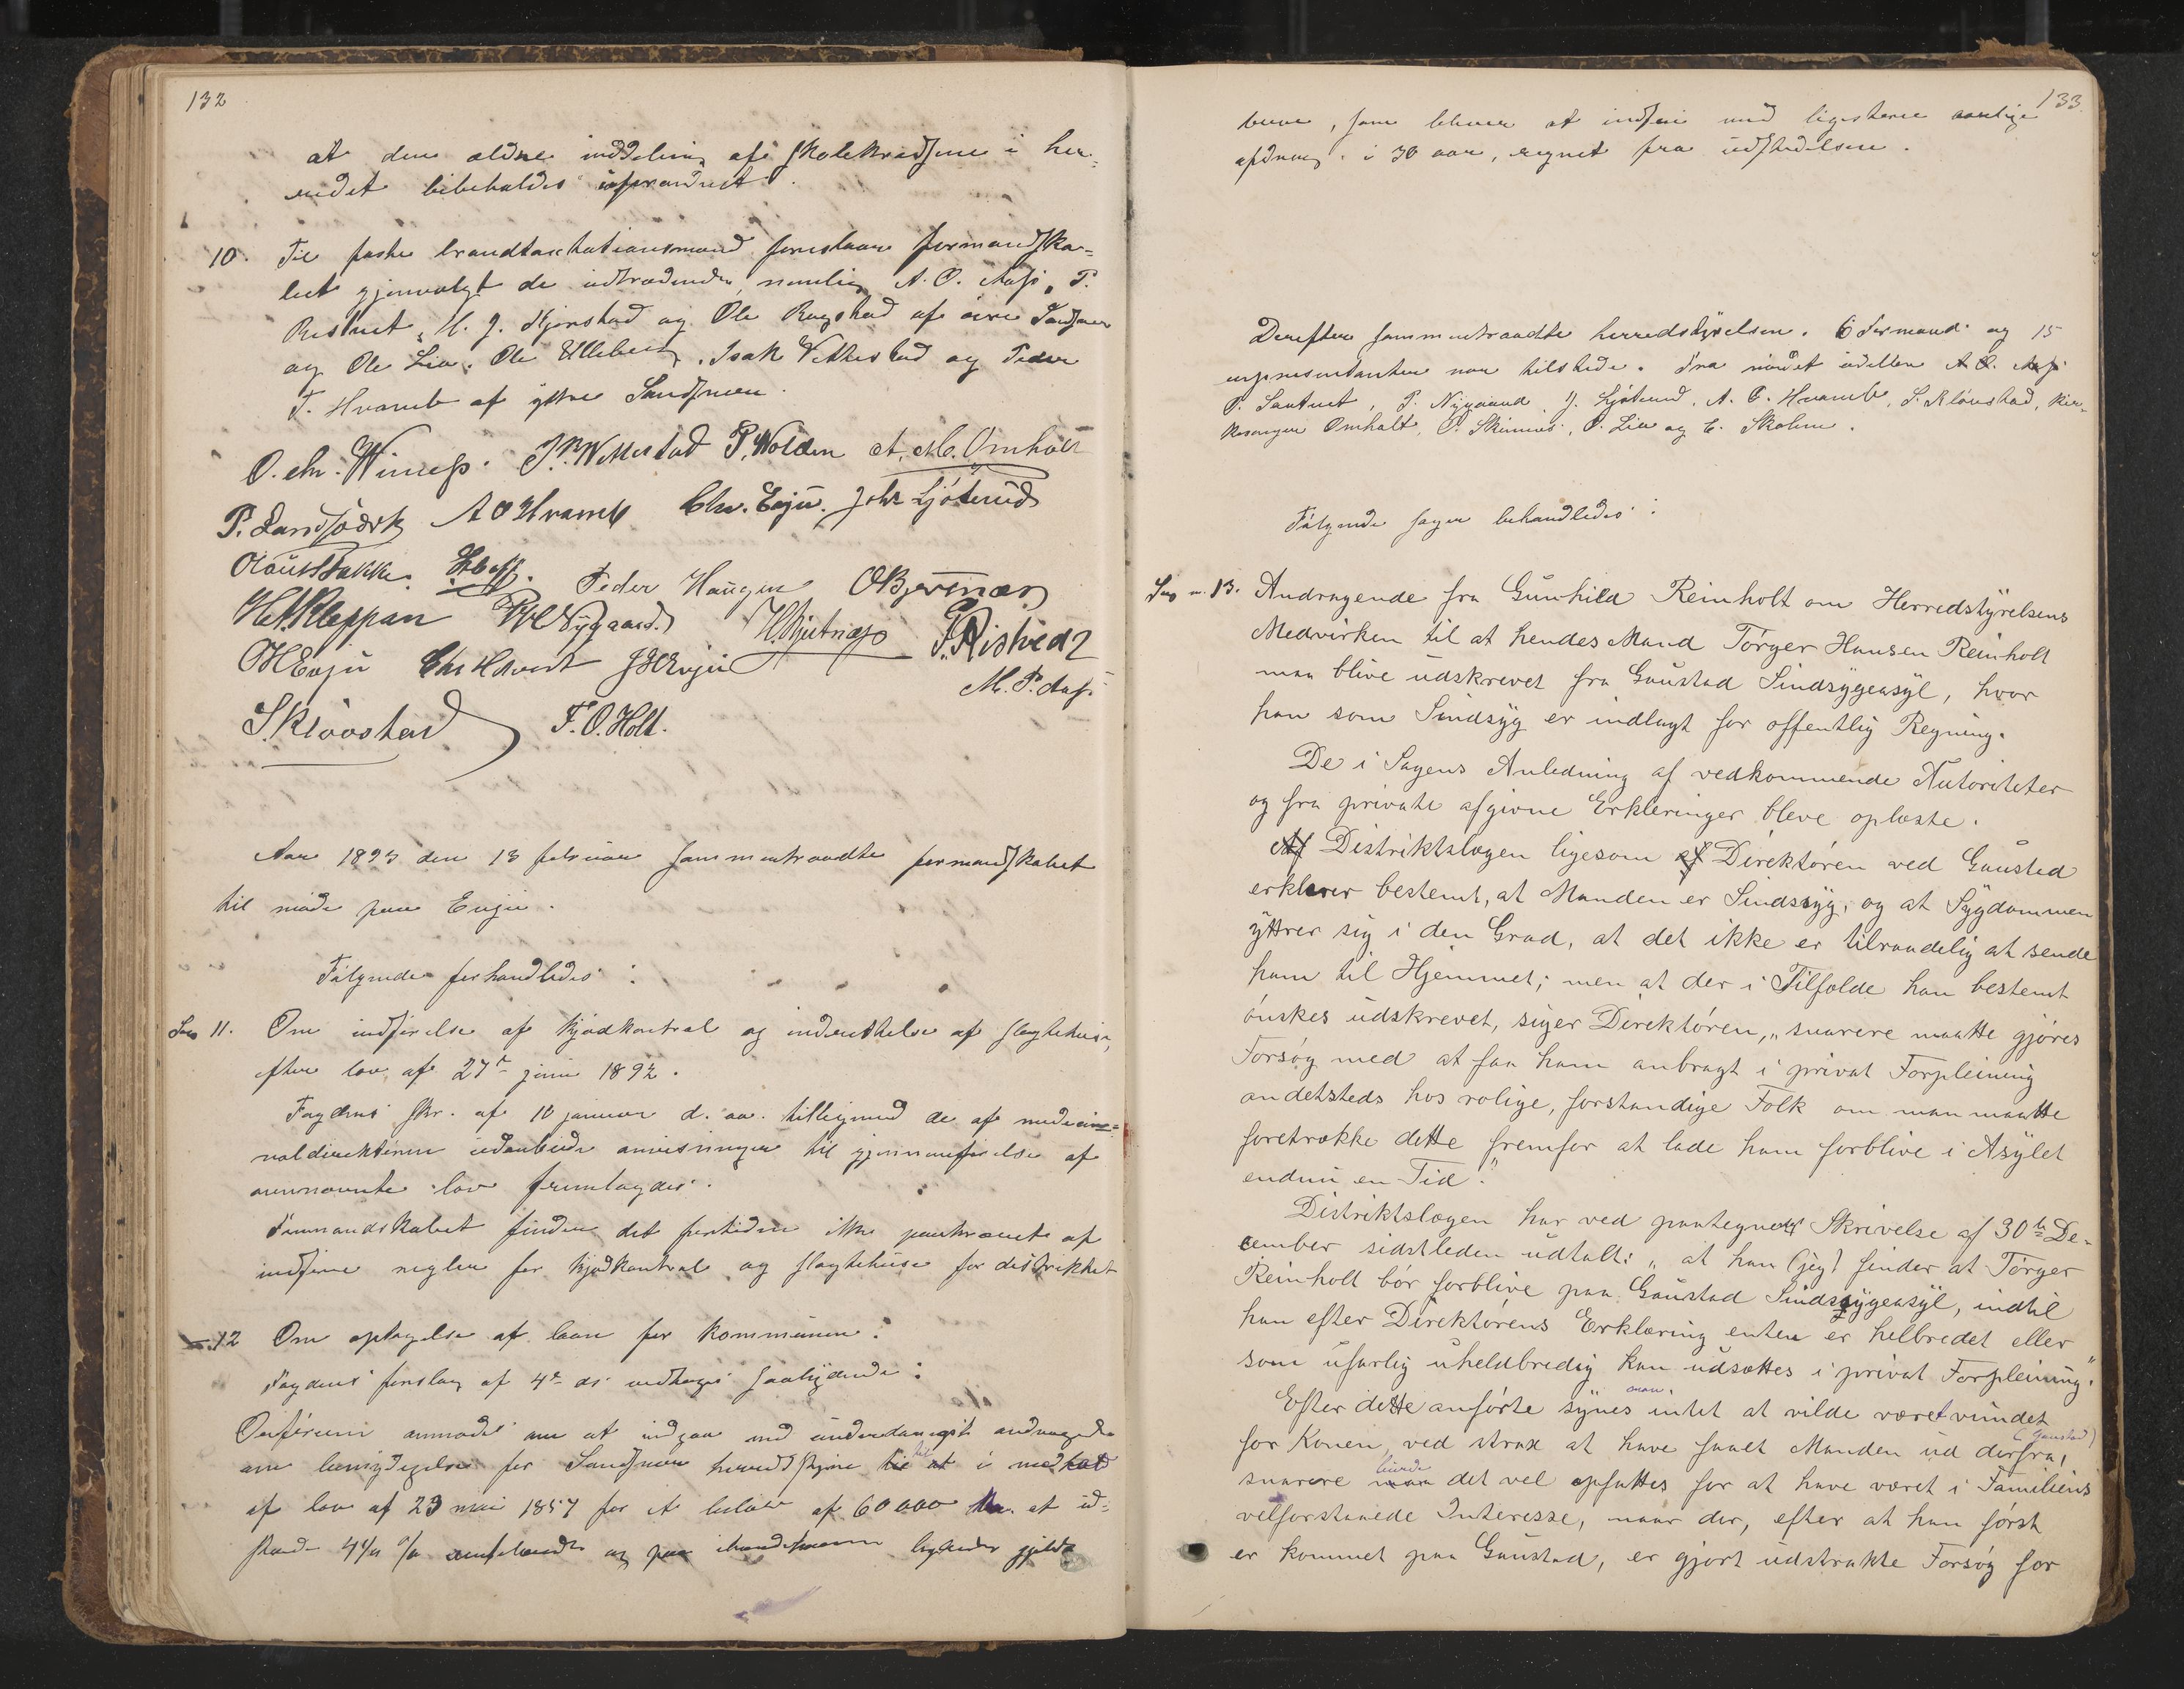 132
at den ældre inddeling af skolekredsene i her-
redet bibeholdes uforandret.
10. Til faste brandtaxtationsmænd foreslaaes formandska-
bet gjenvalgt de udtrædende, nemlig A. O. Aass, P.
Ristvet, H. J. Kjenstad og Ole Ragstad af øvre Sandsver
og Ole Lia, Ole Ulleberg, Isak Vettestad og Peder
T. Hvamb af ytre Sandsver.
O. Chr. Winess. I. P. Wettestad P. Wolden A. M. Omholt
P. Landsværk A O Hvamb Chr. Evju. Joh. Ljøterud
Olaus Bakke. Peder Haugen O Bjerknæs
H. A. Kleppan P. Nygaard. H. Gjutnæss P. Ristvedt
O H Evju Chr Hvidt J H Evju M. P. Aass
S. Kløvstad F. O. Holt.
Aar 1893 den 13 februar sammentraadte formandskabet
til møde paa Evju.
Følgende forhandledes:
Sag 11. Om indførelse af kjødkontrol og indrettelse af slagtehuse,
efter lov af 27de juni 1892.
Fogdens skr. af 10 januar d. aa. tilligemed de af medicinal-
naldirektøren udarbeide anvisninger til gjennemførelse af
ovennævnte lov fremlagdes.
Formandskabet finder det fortiden ikke paakrævet at
indføre regler for kjødkontrol og slagtehuse for distriktet
12 Om optagelse af laan for kommunen:
Fogdens forslag af 4de ds vedtoges saalydende:
Ordføreren anmodes om at indgaa med underdanigst andragende
om bemyndigelse for Sandsver herredsstyre til at i medhold
af lov af 23 mai 1857 for et beløb af 60000 Kr. at ud-
stæde 4 1/4 % rentebærende og paa ihændehaveren lydende gjelds-
133.
breve, som bliver at indfri med ligestore aarlige
afdrag i 30 aar, regnet fra udstedelsen.
Derefter sammentraadte herredstyrelsen. 6 Formænd og 15
repræsentanter var tilstede. Fra mødet udebleve A. O. Aass
P. Santvet, P. Nygaard, J. Ljøterud, A. O. Hvamb, S. Kløvstad, Kir-
kesanger Omholt, O. Skinnes, O. Lia og C. Skolem.
Følgende sager behandledes:
Sag n. 13. Andragende fra Gunhild Reinholt om Herredstyrelsens
Medvirken til at hendes Mand Tørger Hansen Reinholt
maa blive udskrevet fra Gaustad Sindsygeasyl, hvor
han som Sindsyg er indlagt for offentlig Regning.
De i Sagens Anledning af vedkommende Autoriteter
og fra private afgivne Erkleringer bleve oplæste.
Af Distriktslægen ligesom af Direktøren ved Gaustad
erklærer bestemt, at Manden er Sindssyg, og at Sygdommen
yttrer sig i den Grad, at det ikke er tilraadelig at sende
ham til Hjemmet; men at der i Tilfælde han bestemt
ønskes udskrevet, siger Direktøren, „snarere maatte gjøres
Forsøg med at faa ham anbragt i privat Forpleining
andetsteds hos rolige, forstandige Folk om man maatte
foretrække dette fremfor at lade ham forblive i Asylet
endnu en Tid".
Distriktslægen har ved paategnet Skrivelse af 30te De-
cember sidstleden udtalt: „at han (jeg) finder at Tørger
Reinholt bør forblive paa Gaustad Sindssygeasyl, indtil
han efter Direktørens Erklæring enten er helbredet eller
som ufarlig uheldbredig kan udsættes i privat Forpleining".
Efter dette anførte synes man intet at vilde været vundet
for Konen, ved strax at have faaet Manden ud derfra, (Gaustad)
snarere maa burde det vel opfattes for at have været i Familiens
velforstaaede Interesse, naar der, efter at han først
er kommet paa Gaustad, er gjort udstrakte Forsøg for